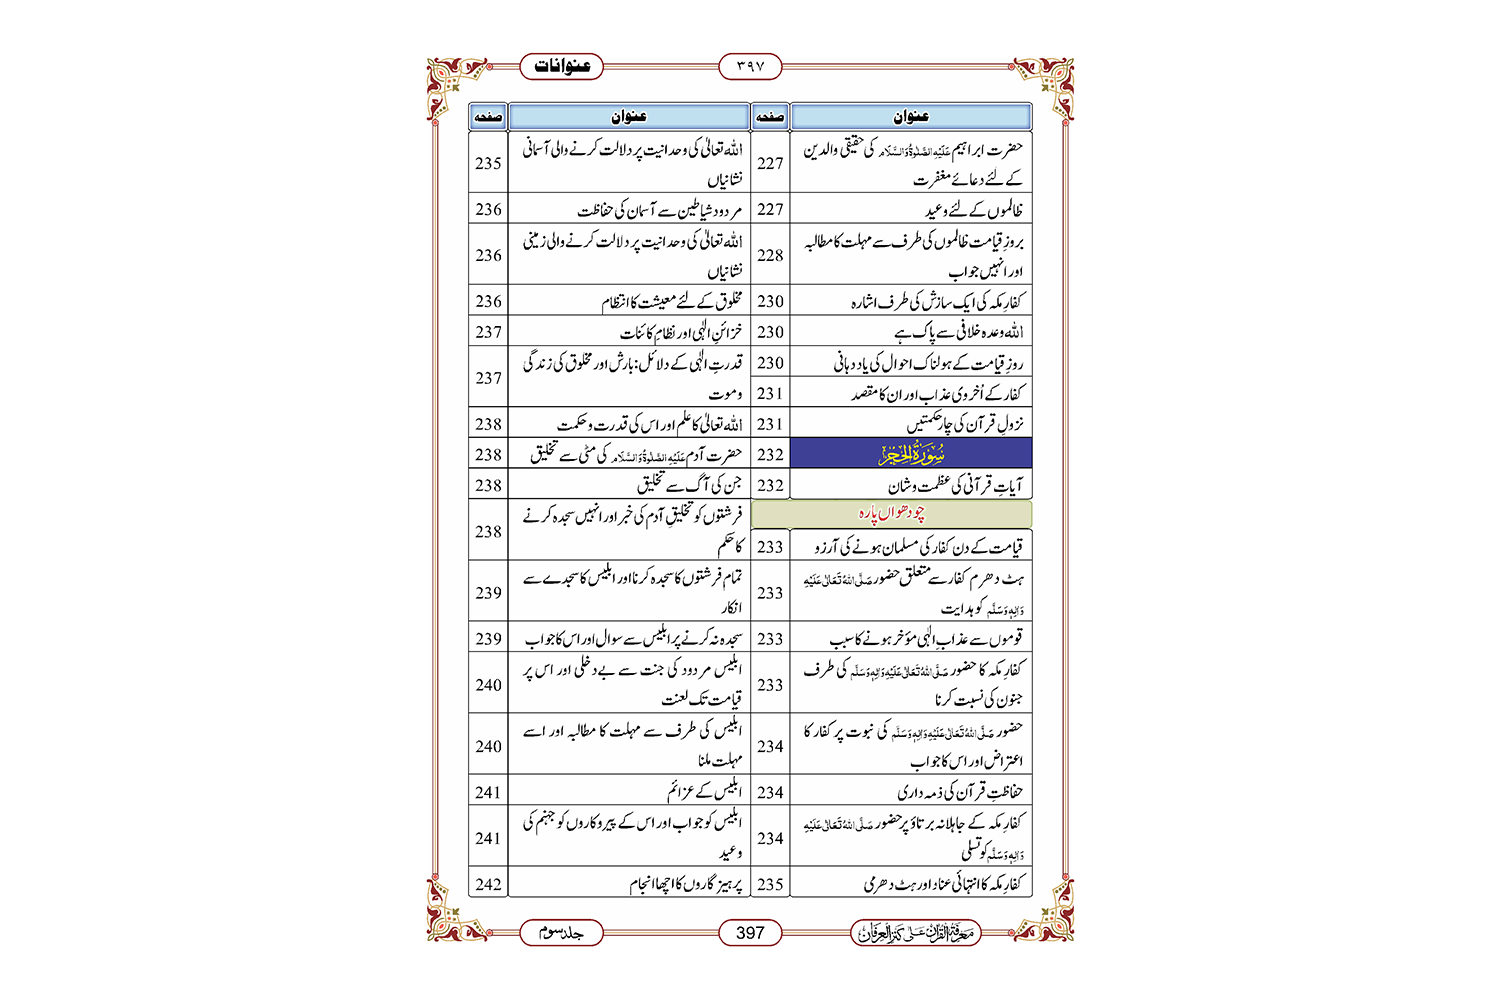 عنوانات
۳۹۷
عنوان صفحہ
حضرت ابراہیم عَلَیْہِ الصَّلٰوۃُ وَالسَّلَام کی حقیقی والدین
کے لئے دعائے مغفرت 227
ظالموں کے لئے وعید 227
بروزِ قیامت ظالموں کی طرف سے مہلت کا مطالبہ
اور انہیں جواب 228
کفارِ مکہ کی ایک سازش کی طرف اشارہ 230
اللہ وعدہ خلافی سے پاک ہے 230
روزِ قیامت کے ہولناک احوال کی یاد دہانی 230
کفار کے اُخروی عذاب اور ان کا مقصد 231
نزولِ قرآن کی چار حکمتیں 231
سُوْرَۃُ الْحِجْر 232
آیاتِ قرآنی کی عظمت و شان 232
چودھواں پارہ
قیامت کے دن کفار کی مسلمان ہونے کی آرزو 233
ہٹ دھرم کفار سے متعلق حضور صَلَّی اللہُ تَعَالٰی عَلَیْہِ
وَاٰلِہٖ وَسَلَّم کو ہدایت 233
قوموں سے عذابِ الٰہی مؤخر ہونے کا سبب 233
کفارِ مکہ کا حضور صَلَّی اللہُ تَعَالٰی عَلَیْہِ وَاٰلِہٖ وَسَلَّم کی طرف
جنون کی نسبت کرنا 233
حضور صَلَّی اللہُ تَعَالٰی عَلَیْہِ وَاٰلِہٖ وَسَلَّم کی نبوت پر کفار کا
اعتراض اور اس کا جواب 234
حفاظتِ قرآن کی ذمہ داری 234
کفارِ مکہ کے جاہلانہ برتاؤ پر حضور صَلَّی اللہُ تَعَالٰی عَلَیْہِ
وَاٰلِہٖ وَسَلَّم کو تسلی 234
کفارِ مکہ کا انتہائی عناد اور ہٹ دھرمی 235
عنوان صفحہ
اللہ تعالٰی کی وحدانیت پر دلالت کرنے والی آسمانی
نشانیاں 235
مردود شیاطین سے آسمان کی حفاظت 236
اللہ تعالٰی کی وحدانیت پر دلالت کرنے والی زمینی
نشانیاں 236
مخلوق کے لئے معیشت کا انتظام 236
خزائنِ الٰہی اور نظامِ کائنات 237
قدرتِ الٰہی کے دلائل: بارش اور مخلوق کی زندگی
و موت 237
اللہ تعالٰی کا علم اور اس کی قدرت و حکمت 238
حضرت آدم عَلَیْہِ الصَّلٰوۃُ وَالسَّلَام کی مٹی سے تخلیق 238
جن کی آگ سے تخلیق 238
فرشتوں کو تخلیقِ آدم کی خبر اور انہیں سجدہ کرنے
کا حکم 238
تمام فرشتوں کا سجدہ کرنا اور ابلیس کا سجدے سے
انکار 239
سجدہ نہ کرنے پر ابلیس سے سوال اور اس کا جواب 239
ابلیس مردود کی جنت سے بے دخلی اور اس پر
قیامت تک لعنت 240
ابلیس کی طرف سے مہلت کا مطالبہ اور اسے
مہلت ملنا 240
ابلیس کے عزائم 241
ابلیس کو جواب اور اس کے پیروکاروں کو جہنم کی
وعید 241
پرہیزگاروں کا اچھا انجام 242
مَعْرِفَۃُ الْقُرْاٰن عَلٰی کَنْزِ الْعِرْفَان
397
جلد سوم